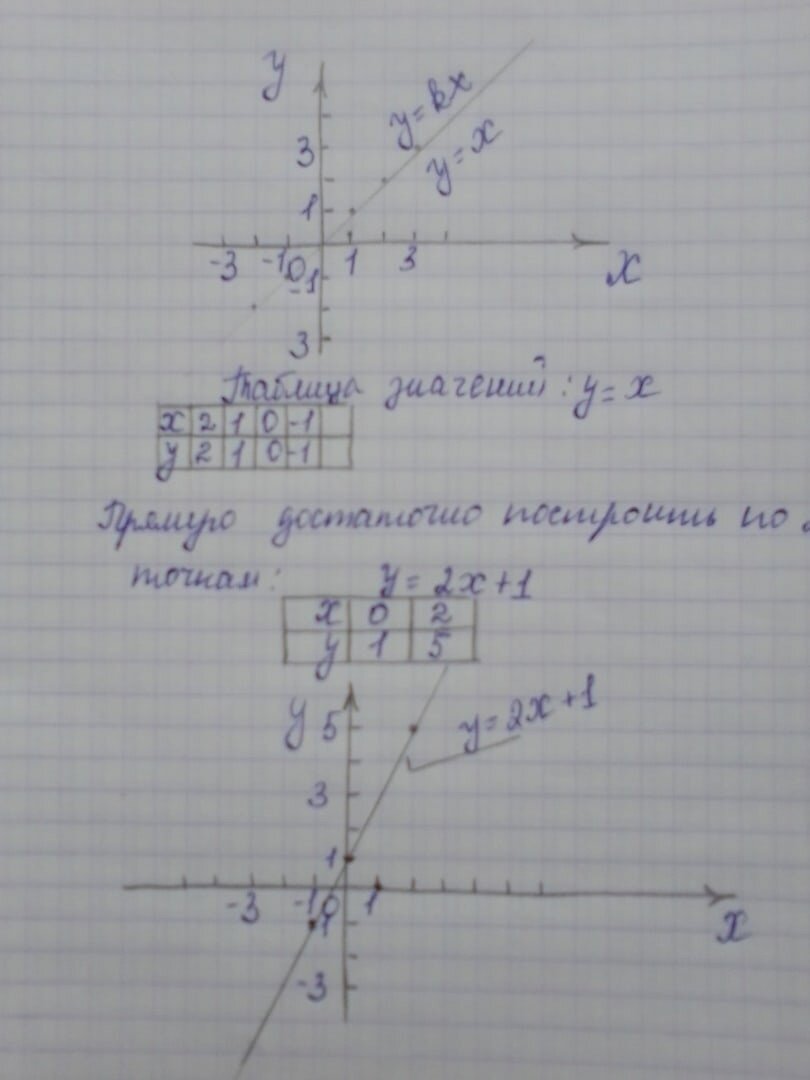 y
y = kx
y = x
3
1
-3 -1 0 1 3 x
-1
3
Таблица значений: y = x
x 2 1 0 -1
y 2 1 0 -1
Прямую достаточно построить по
точкам: y = 2x + 1
x 0 2
y 1 5
y 5 y = 2x + 1
3
1
-3 -1 0 1 x
-1
-3